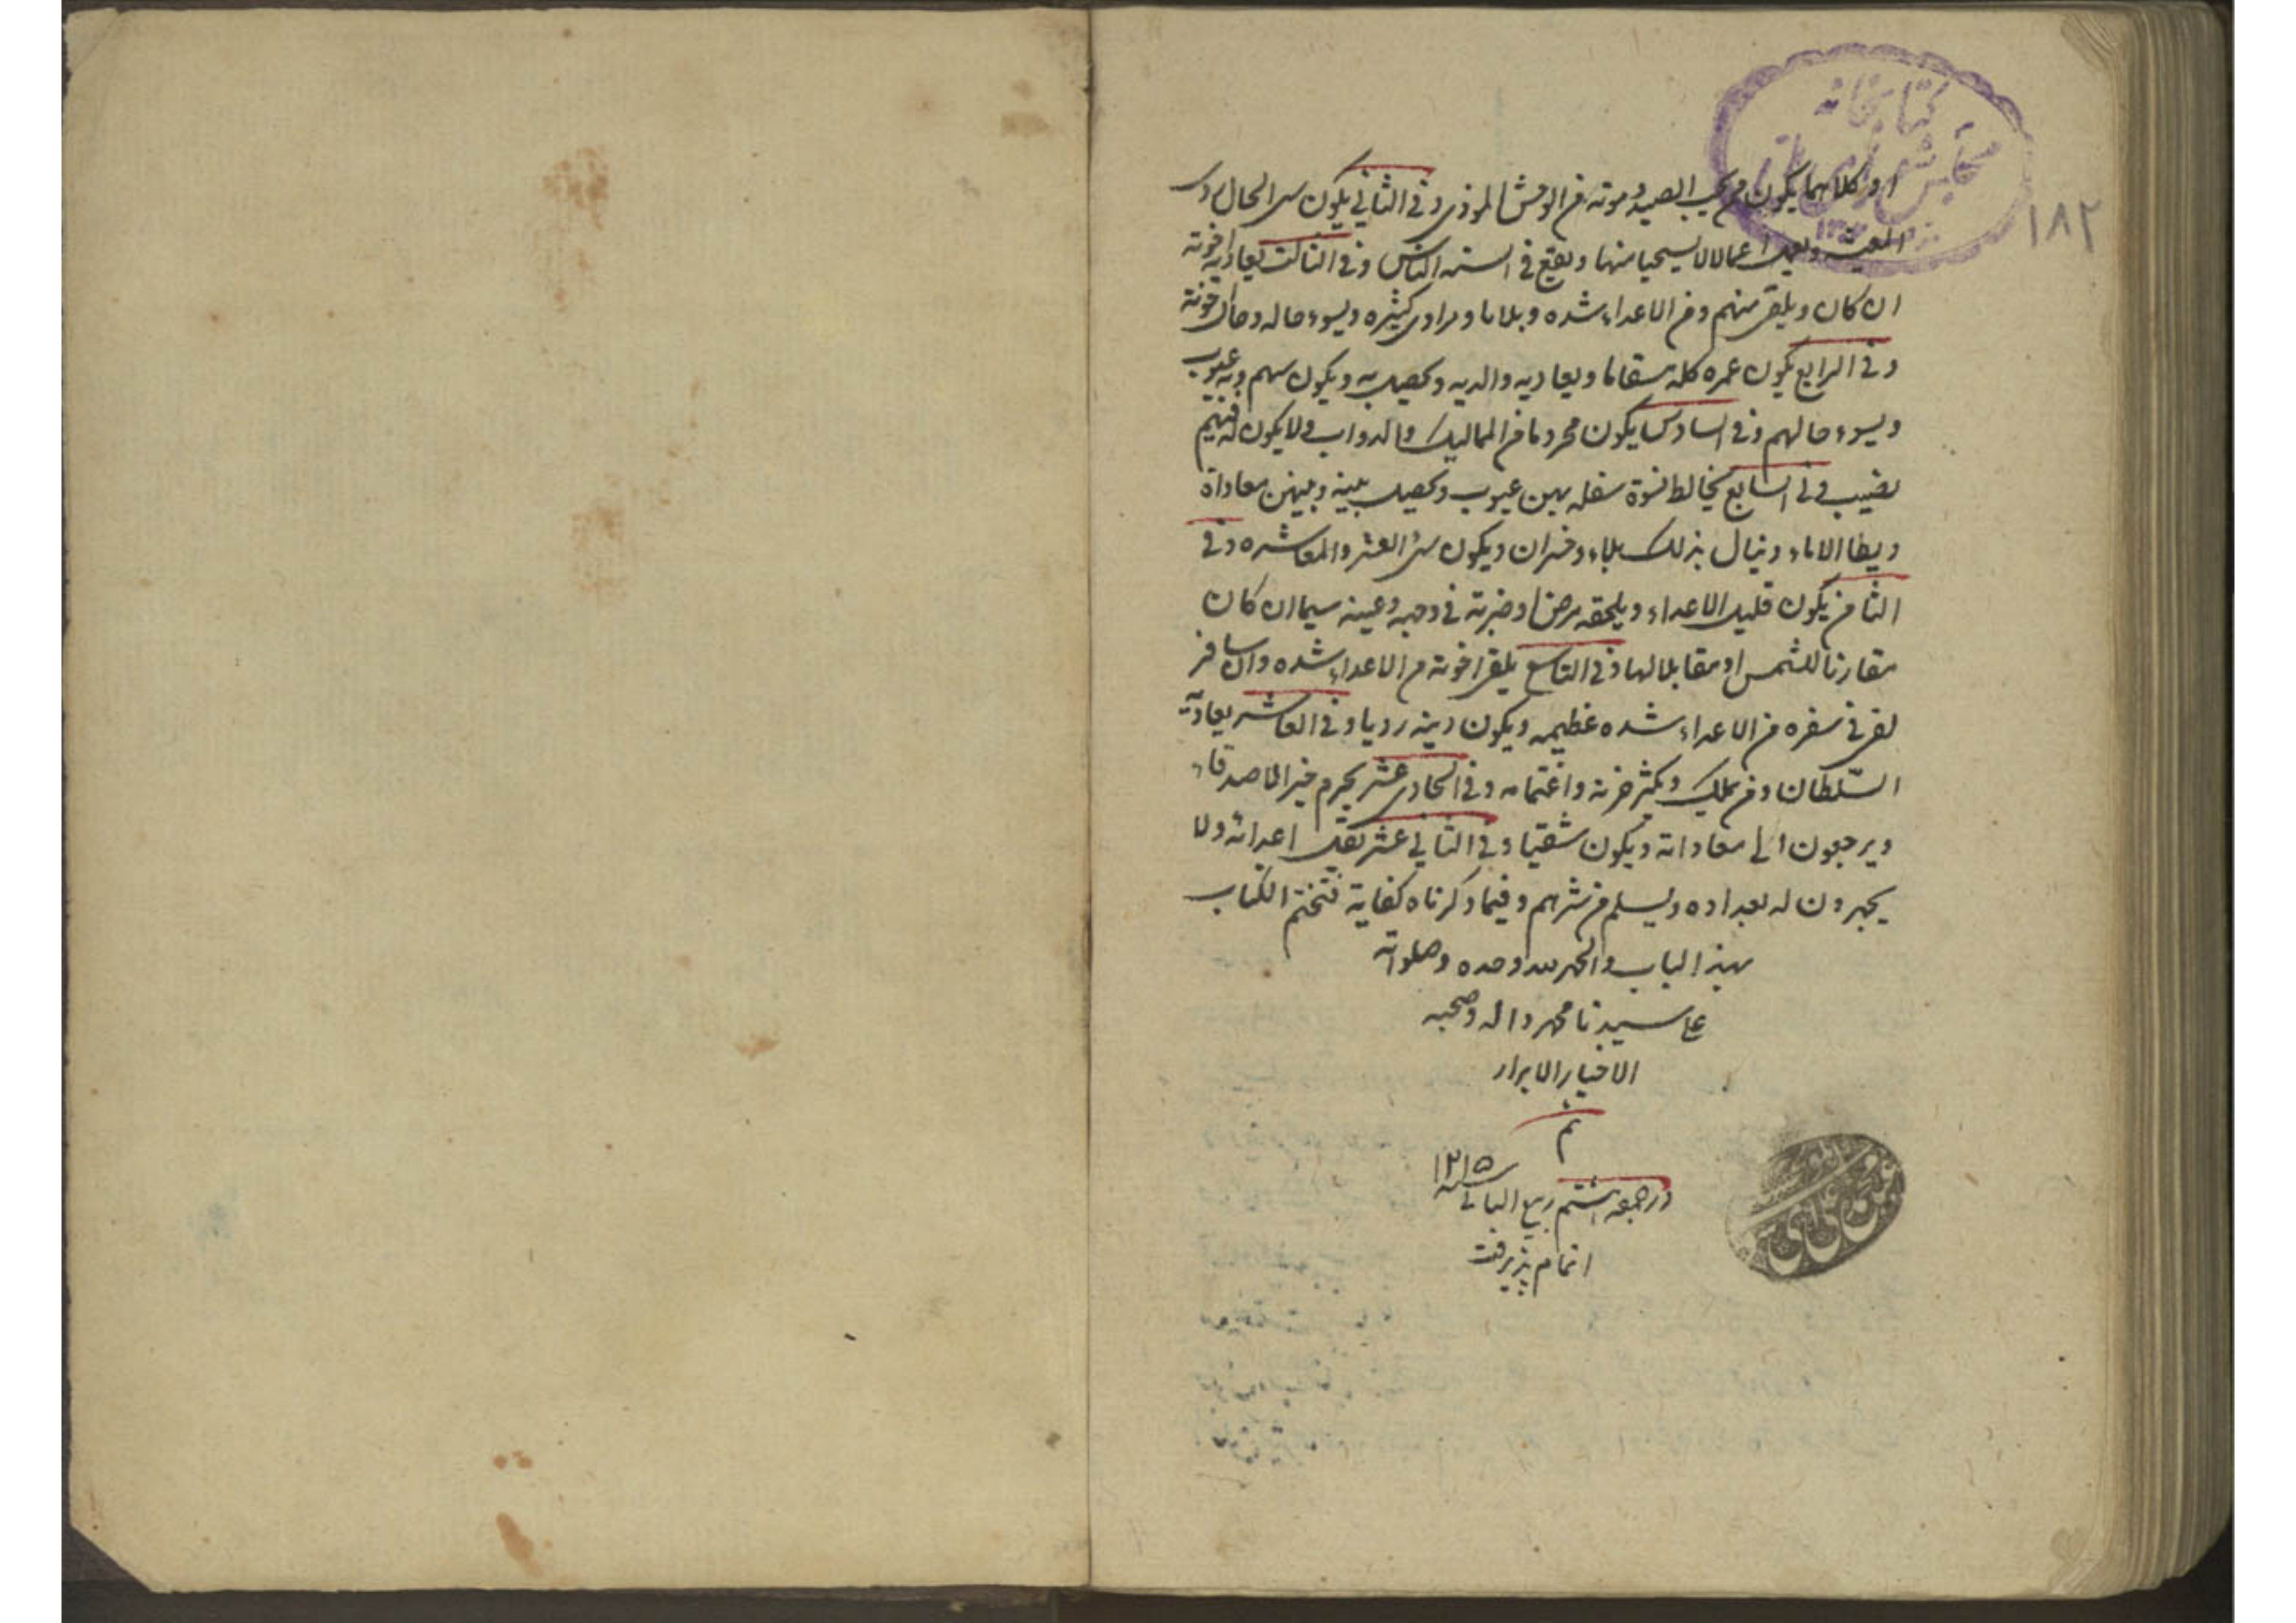 كتابخانه
مجلس شورای ملی
١٨٢
او كلاهما يكون ممن يحب الصيد وموته من الوحش الموذى وفى الثانى يكون سىء الحال ردى
المعيشه ويعمل اعمالا لا يستحيا منها ويقع فى السنه الناس وفى الثالث يعاديه اخوته
ان كان ويلقى منهم ومن الاعداء شده وبلايا كثيره ويسوء حاله وحال اخوته
وفى الرابع يكون عمره كله سقاما ويعاديه والديه ويحصل به ويكون بهم وبه عيوب
ويسوء حالهم وفى السادس يكون محروما من المماليك والدواب ولا يكون له فيهم
نصيب وفى السابع يخالط نسوة سفله بهن عيوب ويحصل بينه وبينهن معاداة
ويطا الاماء وينال بذلك بلاء وخسران ويكون سىء العشر والمعاشره وفى
الثامن يكون قليل الاعداء ويلحقه مرض او ضربة فى وجهه وعينه سيما ان كان
مقارنا للشمس او مقابلا لها وفى التاسع يلقى اخوته من الاعداء شده وان سافر
لقى فى سفره من الاعداء شده عظيمه ويكون دينه رديا وفى العاشر يعاديه
السّلطان ومن يملك ويكثر حزنه واغتمامه وفى الحادى عشر يحرم خير الاصدقاء
ويرجعون الى معاداته ويكون شقيا وفى الثانى عشر يقل اعدائه ولا
يجهرون له بعداوه ويسلم من شرهم وفيما ذكرناه كفاية فنختم الكتاب
بهذا الباب والحمد لله وحده وصلواته
على سيدنا محمد واله وصحبه
الاخيار الابرار
تم
در جمعه هشتم ربيع الثانى سنه ١٢١٥
اتمام پذيرفت